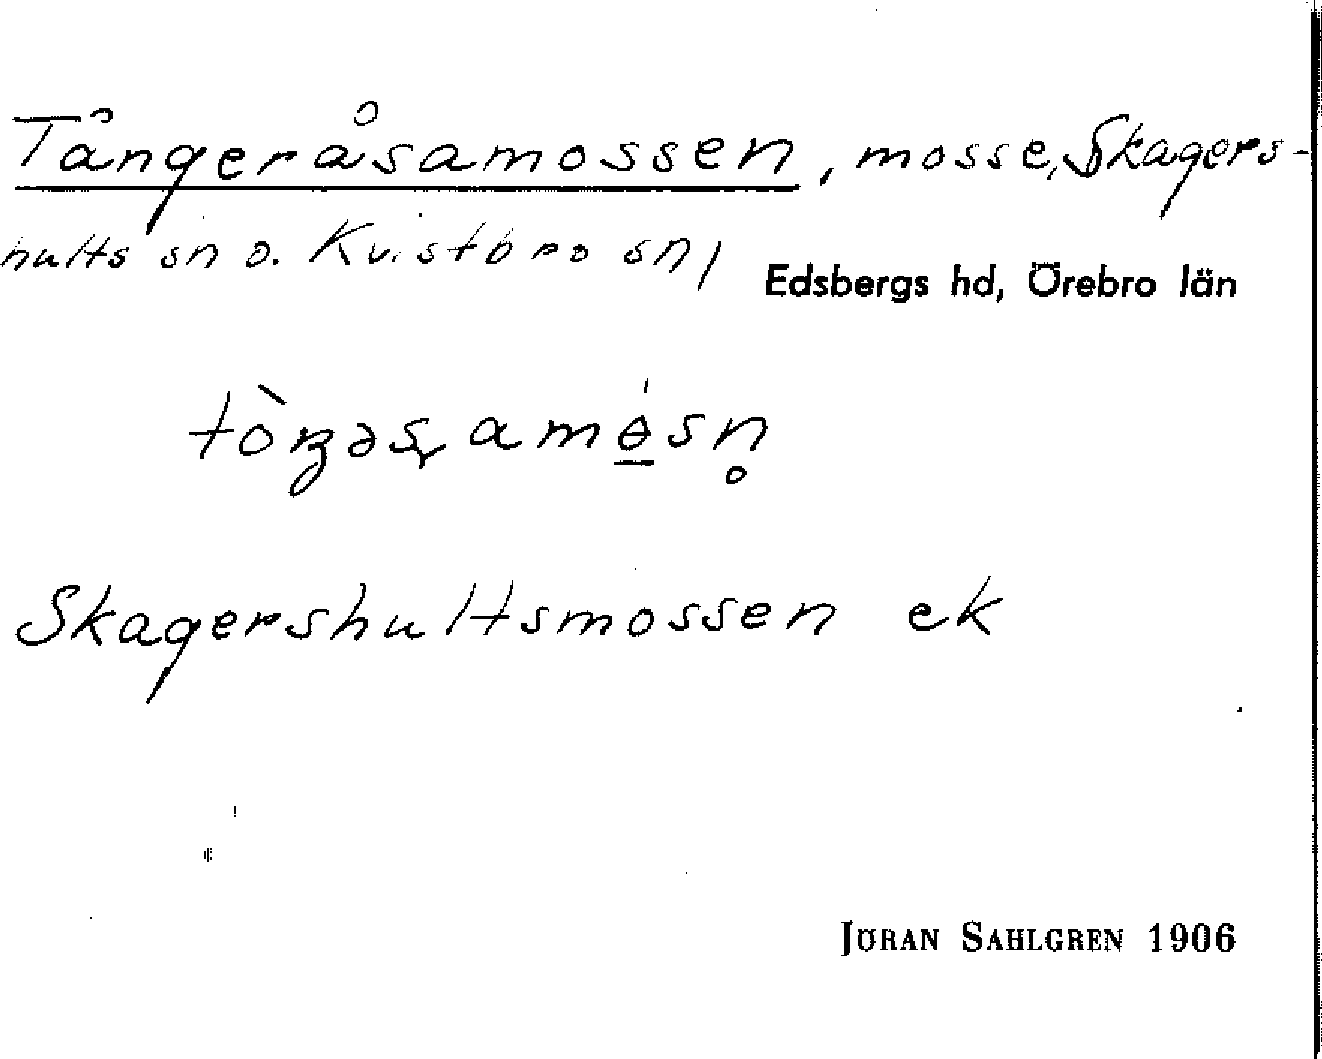 Tångeråsamossen, mosse, Skagers-
hults sn o. Kvistbro sn,
Edsbergs hd, Örebro län
Skagershultsmossen ek
JÖRAN SAHLGREN 1906